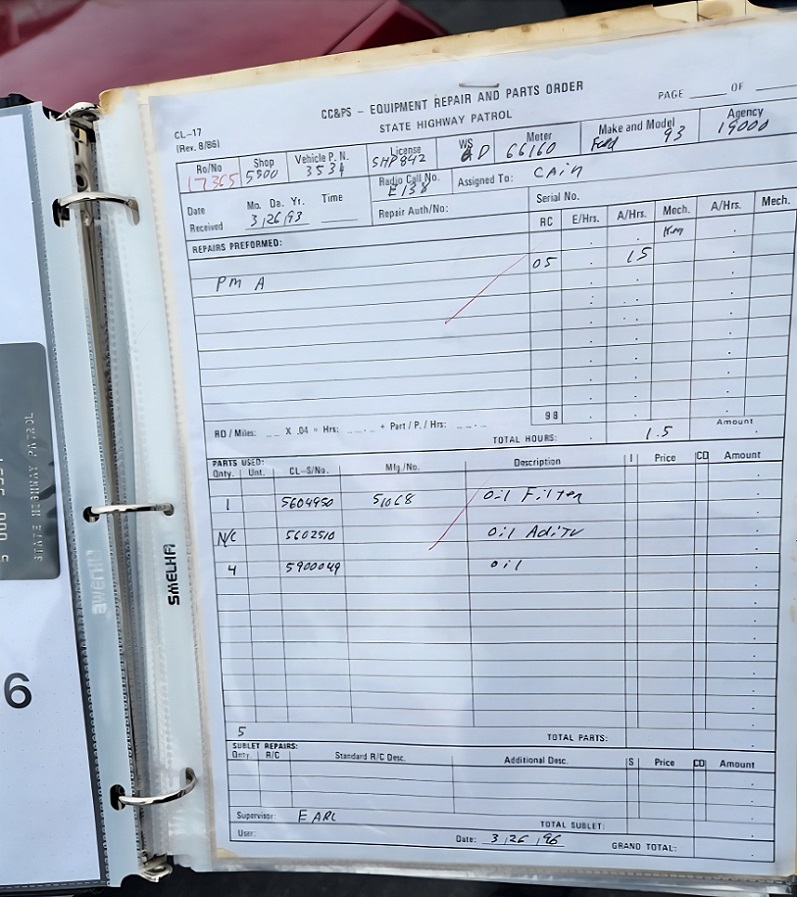 CL-17
(Rev. 8/86)
CC&PS - EQUIPMENT REPAIR AND PARTS ORDER
STATE HIGHWAY PATROL
PAGE ____ OF ____
Ro/No 17365
Shop 5500
Vehicle P. N. 3534
License SHP842
WS D
Meter 66160
Make and Model Ford 93
Agency 19000
Date Received
Mo. Da. Yr. 3/26/93
Time
Radio Call No. E138
Assigned To: CAin
Repair Auth/No:
Serial No.
REPAIRS PREFORMED:
RC E/Hrs. A/Hrs. Mech. A/Hrs. Mech.
Pm A 05 1.5
98
RD/Miles: X .04 = Hrs: + Part / P. / Hrs:
Amount
TOTAL HOURS: 1.5
PARTS USED:
Qnty. Unt. CL-S/No. Mfg./No. Description I Price CD Amount
1 5604950 51068 Oil Filter
N/C 5602510 Oil Aditv
4 5900049 Oil
5
TOTAL PARTS:
SUBLET REPAIRS:
Qnty. R/C Standard R/C Desc. Additional Desc. S Price CD Amount
Supervisor: EARL
TOTAL SUBLET:
User:
Date: 3/26/96
GRAND TOTAL:
STATE HIGHWAY PATROL
6